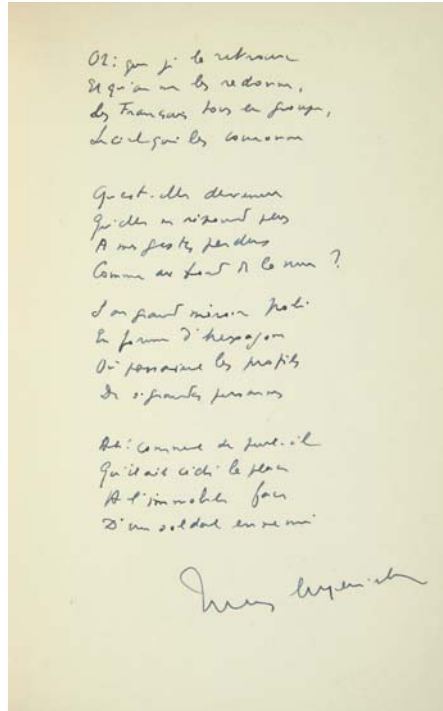 Oh! que je la retrouve
Et qu'on me les redonne,
Les Français tous en groupe,
Le ciel qui les couronne
Qu'est-elle devenue
Qu'elle ne répond plus
A mes gestes perdus
Comme au fond de la nue ?
Son grand miroir poli
En forme d'hexagone
Où passaient les profils
De si grandes personnes
Ah! comment se peut-il
Qu'il ait cédé la place
A l'immobile face
D'un soldat ennemi
Jules Supervielle